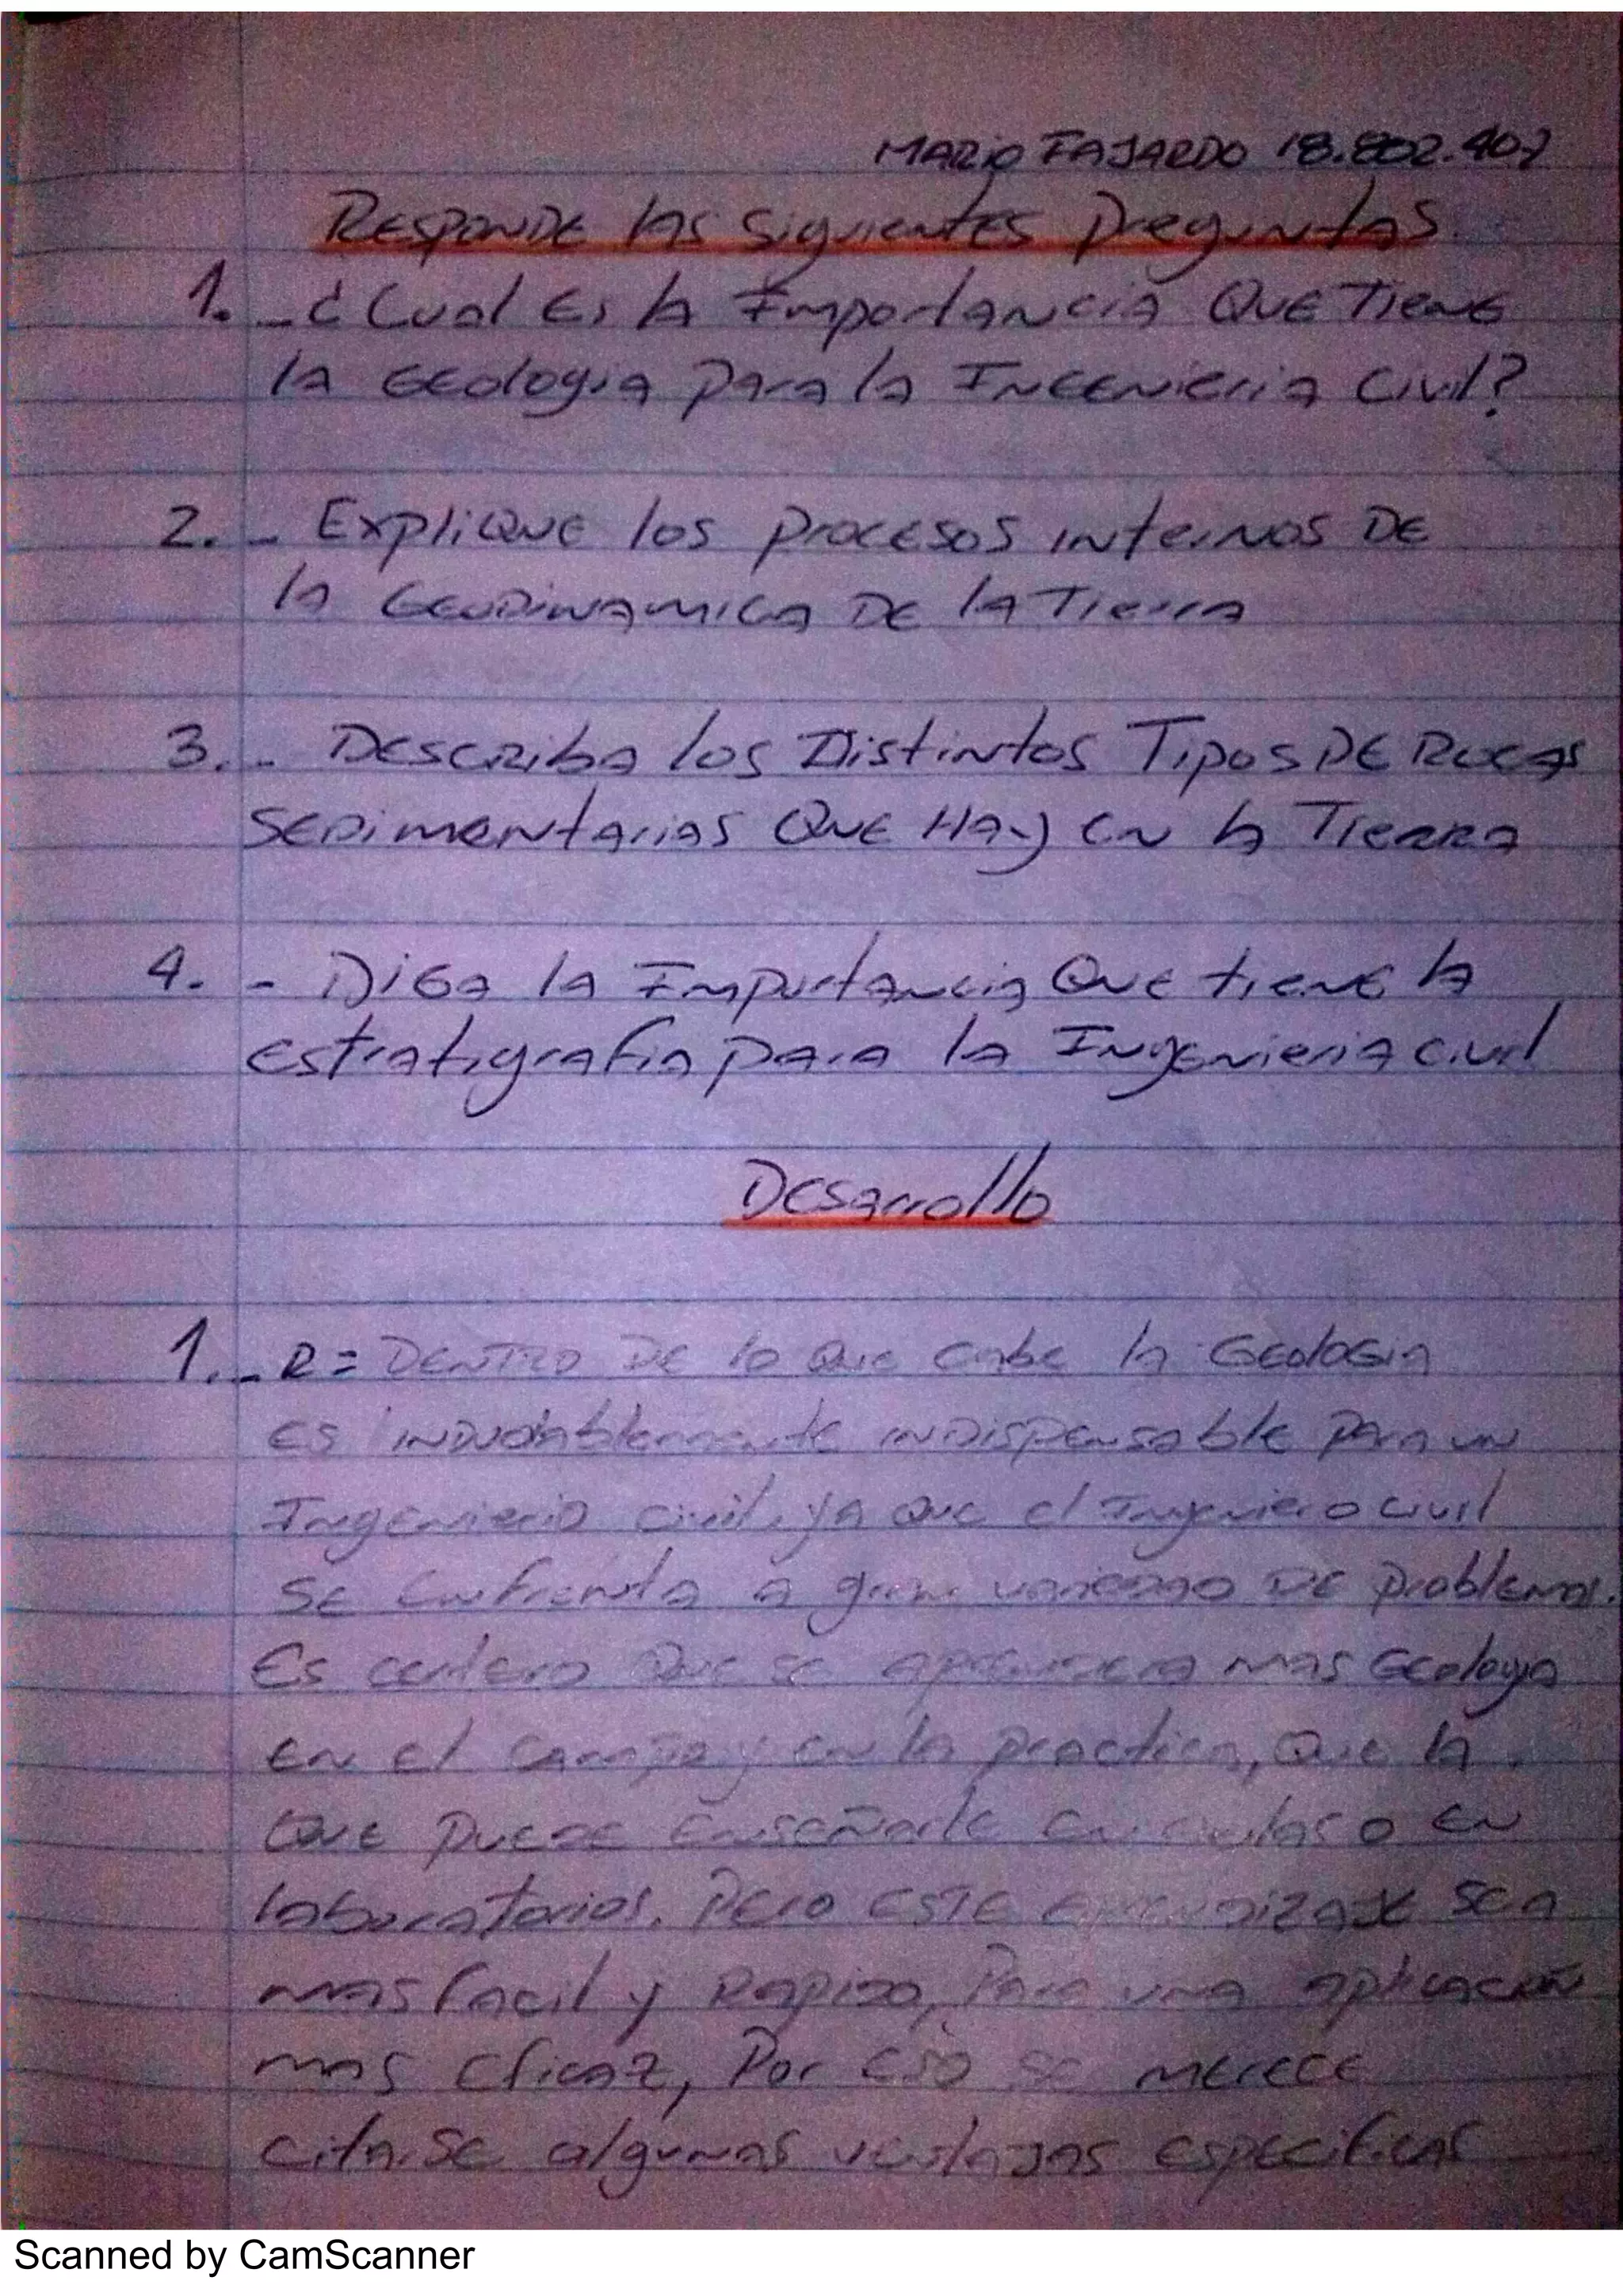 MARIO FAJARDO 18.802.407
RESPONDE las siguientes preguntas.
1. - ¿Cual Es la Importancia QUE TIENE
la GEologia para la INGENieria Civil?
2. - ExpliQUE los procesos internos DE
la GEODinamica DE la Tierra
3. - DEscriba los Distintos Tipos DE ROCAS
SEDimentarias QUE HAy en la TIERRA
4. - DiGa la Importancia Que tiene la
estratigrafia para la Ingenieria civil
Desarrollo
1. - R = DENTRO DE lo Que cabe la GEoloGia
es inDudablemente inDispensable para un
Ingenierio civil, ya que el Ingeniero civil
SE Enfrenta a gran variedad DE problemas.
Es certero Que se mas Geologia
en el campo y en la practica, Que la
QuE puede Enseñarle en o en
laboratorios. Pero ESTE aprendizaje sea
mas facil y Rapido, para una aplicación
mas eficaz, Por eso se merece
citarse algunas ventajas especificas
Scanned by CamScanner